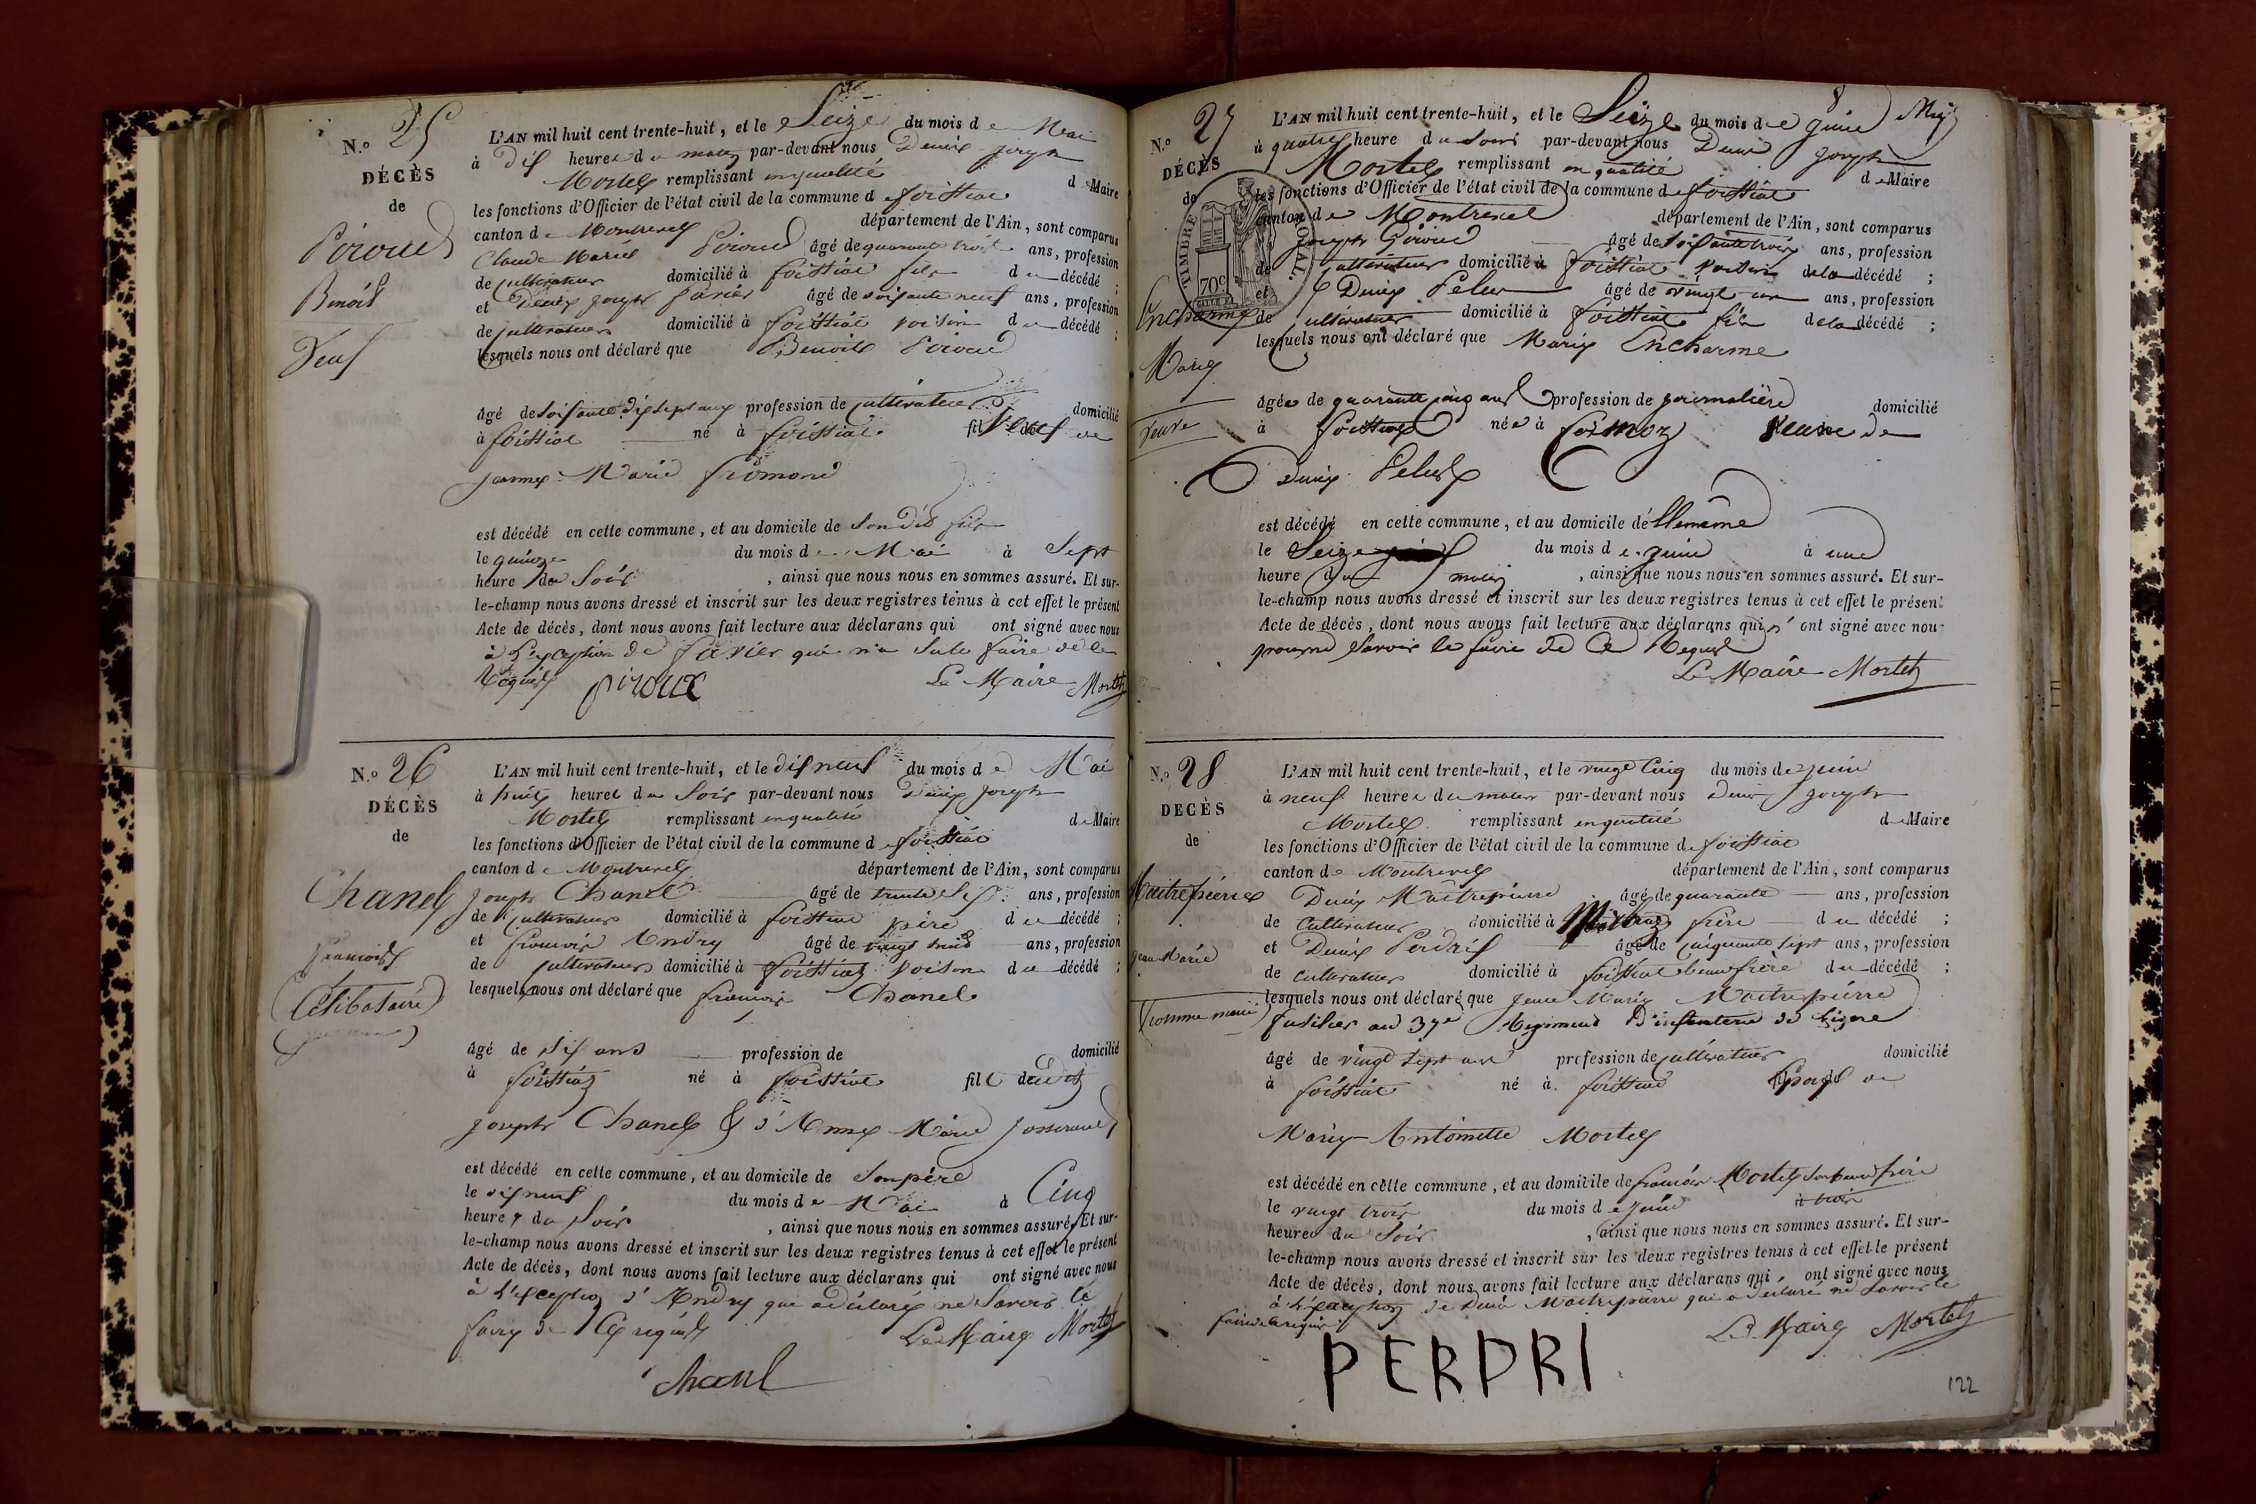 N.o 25
DÉCÈS
de
Piroud
Benoit
Veuf
L'AN mil huit cent trente-huit, et le Seize du mois de Mai
à dix heures du matin par-devant nous Denis Joseph
Mortel remplissant en qualité de Maire
les fonctions d'Officier de l'état civil de la commune de foissiat
canton de Montrevel département de l'Ain, sont comparus
Claude Marie Piroud âgé de quarante trois ans, profession
de cultivateur domicilié à foissiat fils du décédé ;
et Denis Joseph favier âgé de soixante neuf ans, profession
de cultivateur domicilié à foissiat voisin du décédé ;
lesquels nous ont déclaré que Benoit Piroud
âgé de soixante dix sept ans profession de cultivateur domicilié
à foissiat né à foissiat Veuf de
jeanne Marie fromond
est décédé en cette commune, et au domicile de son dit fils
le quinze du mois de Mai à Sept
heure du Soir , ainsi que nous nous en sommes assuré. Et sur-
le-champ nous avons dressé et inscrit sur les deux registres tenus à cet effet le présent
Acte de décès, dont nous avons fait lecture aux déclarans qui ont signé avec nous
à L'exception de favier qui n'a Su le faire de ce
Requis piroux Le Maire Mortel
N.o 26
DÉCÈS
de
Chanel
francois
Celibataire
L'AN mil huit cent trente-huit, et le dix neuf du mois de Mai
à huit heures du Soir par-devant nous Denis Joseph
Mortel remplissant en qualité de Maire
les fonctions d'Officier de l'état civil de la commune de foissiat
canton de Montrevel département de l'Ain, sont comparus
Joseph Chanel âgé de trente Six ans, profession
de cultivateur domicilié à foissiat père du décédé ;
et francois Andry âgé de vingt huit ans, profession
de cultivateur domicilié à foissiat voisin du décédé ;
lesquels nous ont déclaré que francois Chanel
âgé de dix ans profession de domicilié
à foissiat né à foissiat fils dudit
Joseph Chanel & d'Anne Marie Josserand
est décédé en cette commune, et au domicile de Son père
le dix neuf du mois de Mai à Cinq
heures du Soir , ainsi que nous nous en sommes assuré. Et sur-
le-champ nous avons dressé et inscrit sur les deux registres tenus à cet effet le présent
Acte de décès, dont nous avons fait lecture aux déclarans qui ont signé avec nous
à L'exception d'Andry qui a déclaré ne Savoir le
faire de Ce requis Le Maire Mortel
chanel
N.o 27
DÉCÈS
de
Encharme
Marie
Veuve
TIMBRE ROYAL.
70c
L'AN mil huit cent trente-huit, et le Seize du mois de juin
à quatre heure du Soir par-devant nous Denis Joseph
Mortel remplissant en qualité de Maire
les fonctions d'Officier de l'état civil de la commune de foissiat
canton de Montrevel département de l'Ain, sont comparus
Joseph Giroud âgé de soixante trois ans, profession
de cultivateur domicilié à foissiat voisin de la décédé ;
et Denis Pelus âgé de vingt un ans, profession
de cultivateur domicilié à foissiat fils de la décédé ;
lesquels nous ont déclaré que Marie Encharme
âgée de quarante cinq ans profession de journalière domicilié
à foissiat née à Veuve de
Denis Pelus
est décédé en cette commune, et au domicile d'Elle même
le Seize du mois de juin à une
heure du matin , ainsi que nous nous en sommes assuré. Et sur-
le-champ nous avons dressé et inscrit sur les deux registres tenus à cet effet le présent
Acte de décès, dont nous avons fait lecture aux déclarans qui n'ont signé avec nous
pour ne Savoir le faire de Ce Requis
Le Maire Mortel
N.o 28
DECÈS
de
Maitrepierre
Jean Marie
(homme marié)
L'AN mil huit cent trente-huit, et le vingt Cinq du mois de juin
à neuf heures du matin par-devant nous Denis Joseph
Mortel remplissant en qualité de Maire
les fonctions d'Officier de l'état civil de la commune de foissiat
canton de Montrevel département de l'Ain, sont comparus
Denis Maitrepierre âgé de quarante ans, profession
de Cultivateur domicilié à frère du décédé ;
et Denis Perdrix âgé de cinquante sept ans, profession
de cultivateur domicilié à foissiat beau frère du décédé ;
lesquels nous ont déclaré que Jean Marie Maitrepierre
fusilier au 37e Regiment D'infanterie de Ligne
âgé de vingt sept ans profession de cultivateur domicilié
à foissiat né à foissiat Epoux de
Marie Antoinette Mortel
est décédé en cette commune, et au domicile de francois Mortel Son beau frère
le vingt trois du mois de juin à trois
heures du Soir , ainsi que nous nous en sommes assuré. Et sur-
le-champ nous avons dressé et inscrit sur les deux registres tenus à cet effet le présent
Acte de décès, dont nous avons fait lecture aux déclarans qui ont signé avec nous
à L'exception de Denis Maitrepierre qui a déclaré ne Savoir le
faire de ce requis Le Maire Mortel
PERDRI
122